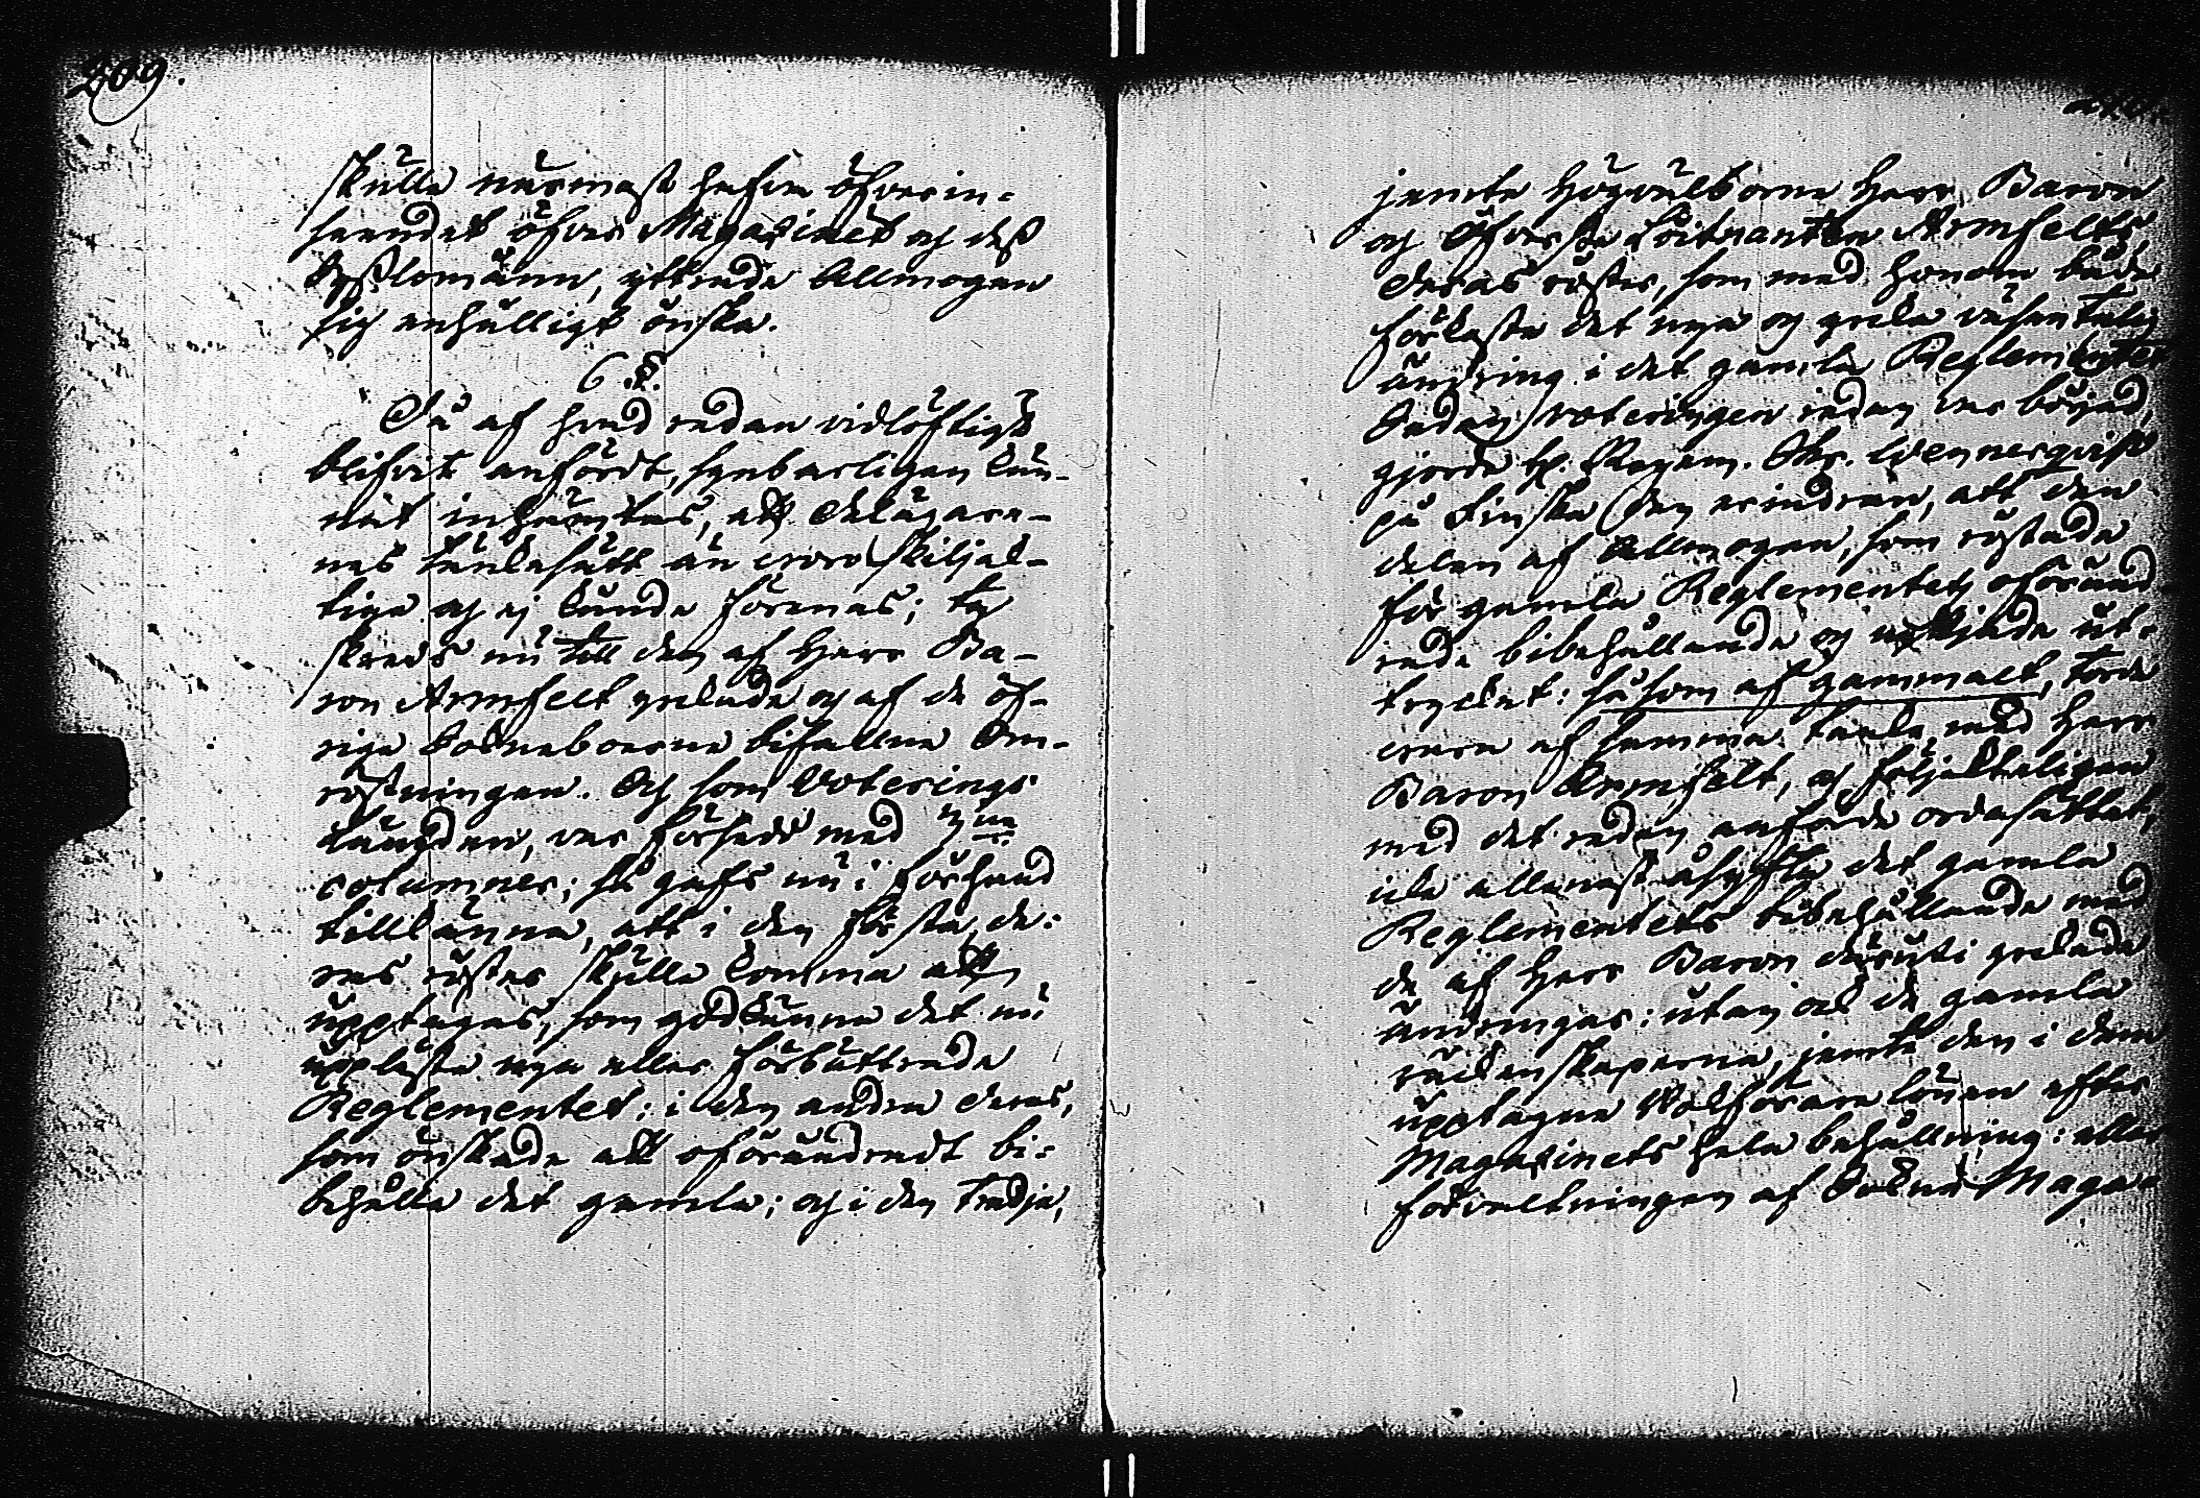 209.
skulle närmast hafva öfverin-
seendet öfver Magasinet och dess
Sysslomänn, yttrade Allmogen
sig enhälligt önska.
6 §.
Då af hvad redan vidlöftigt
blifvit anfördt, synbarligen kun-
nat inhämtas, att Delägare-
nas tänkesätt än voro skiljak-
tiga och ej kunde förenas; ty
skreds nu till den af Herr Ba-
ron Armfelt yrkade och af de öf-
riga Sockneboerne bifallna Om-
röstningen. Och som Voterings
längden, var försedd med 3 ne
columner; så gafs nu i förhand
tillkänna, att i den första, de-
ras röster skulle komma att
upptagas, som godkänna det nu
upplästa nya eller förbättrade
Reglementet; i den andra deras,
som önskade att oförändradt bi-
behålla det gamla; och i den tredje,
210.
jemte Högvälborne Herr Baron
och Öfverste Löitnanten Armfelts
deras röster, som med honom både
förkasta det nya och yrka väsentelig
ändring i det gamla Reglementet
Sedan voteringen redan var börjad,
gjorde H. Regem. Skr. Wennerqvist
på Finska den erindran, att den
delen af Allmogen, som röstade
för gamla Reglementets oföränd
rade bibehållande och nyttjade ut-
trycket: såsom af gammalt, torde
vara af samma tanke med Herr
Baron Armfelt, och följakteligen
med det redan anförde ordasättet,
icke allenast åsyfta det gamla
Reglementets bibehållande med
de af Herr Baron däruti yrkade
ändringar: utan ock de gamla
räkenskaperna, jemte den i dem
upptagna Bokförare lönen efter
Magasinets hela behållning: eller
förvaltningen af Sockne Maga-